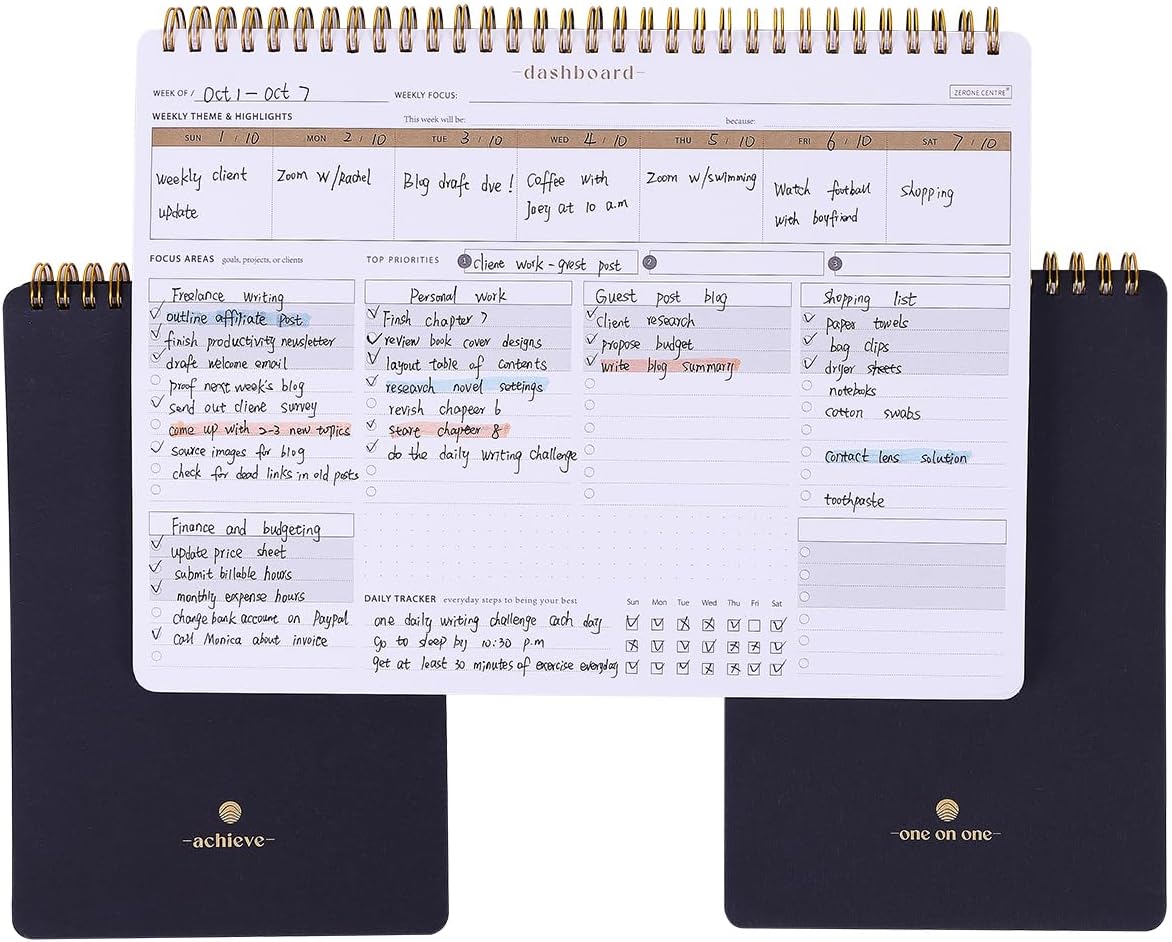 -dashboard-
WEEK OF / Oct 1 - Oct 7 WEEKLY FOCUS:
ZERONE CENTRE
WEEKLY THEME & HIGHLIGHTS This week will be: because:
SUN 1 / 10 MON 2 / 10 TUE 3 / 10 WED 4 / 10 THU 5 / 10 FRI 6 / 10 SAT 7 / 10
weekly client
update
Zoom w/Rachel
Blog draft due !
Coffee with
Joey at 10 a.m
Zoom w/swimming
Watch football
with boyfriend
shopping
FOCUS AREAS goals, projects, or clients
TOP PRIORITIES 1 client work - guest post 2 3
Freelance writing
outline affiliate post
finish productivity newsletter
draft welcome email
proof next week's blog
send out client survey
come up with 2-3 new topics
source images for blog
check for dead links in old posts
Personal work
Finsh chapter 7
review book cover designs
layout table of contents
research novel settings
revish chapeer 6
start chapter 8
do the daily writing challenge
Guest post blog
client research
propose budget
write blog summary
Shopping list
paper towels
bag clips
dryer sheets
notebooks
cotton swabs
contact lens solution
toothpaste
Finance and budgeting
update price sheet
submit billable hours
monthly expense hours
change bank account on PayPal
Call Monica about invoice
DAILY TRACKER everyday steps to being your best Sun Mon Tue Wed Thu Fri Sat
one daily writing challenge each day
Go to sleep by 10:30 p.m
get at least 30 minutes of exercise everyday
-achieve-
-one on one-